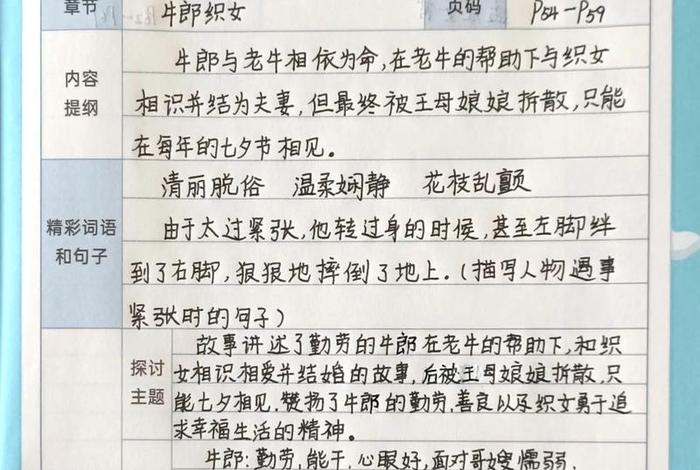 章节 牛郎织女 页码 P54-P59
内容提纲
牛郎与老牛相依为命,在老牛的帮助下与织女
相识并结为夫妻,但最终被王母娘娘拆散,只能
在每年的七夕节相见。
精彩词语和句子
清丽脱俗 温柔娴静 花枝乱颤
由于太过紧张,他转过身的时候,甚至左脚绊
到了右脚,狠狠地摔倒了地上。(描写人物遇事
紧张时的句子)
探讨主题
故事讲述了勤劳的牛郎在老牛的帮助下,和织
女相识相爱并结婚的故事,后被王母娘娘拆散,只
能七夕相见,赞扬了牛郎的勤劳,善良以及织女勇于追
求幸福生活的精神。
牛郎:勤劳,能干,心眼好,面对哥嫂懦弱.